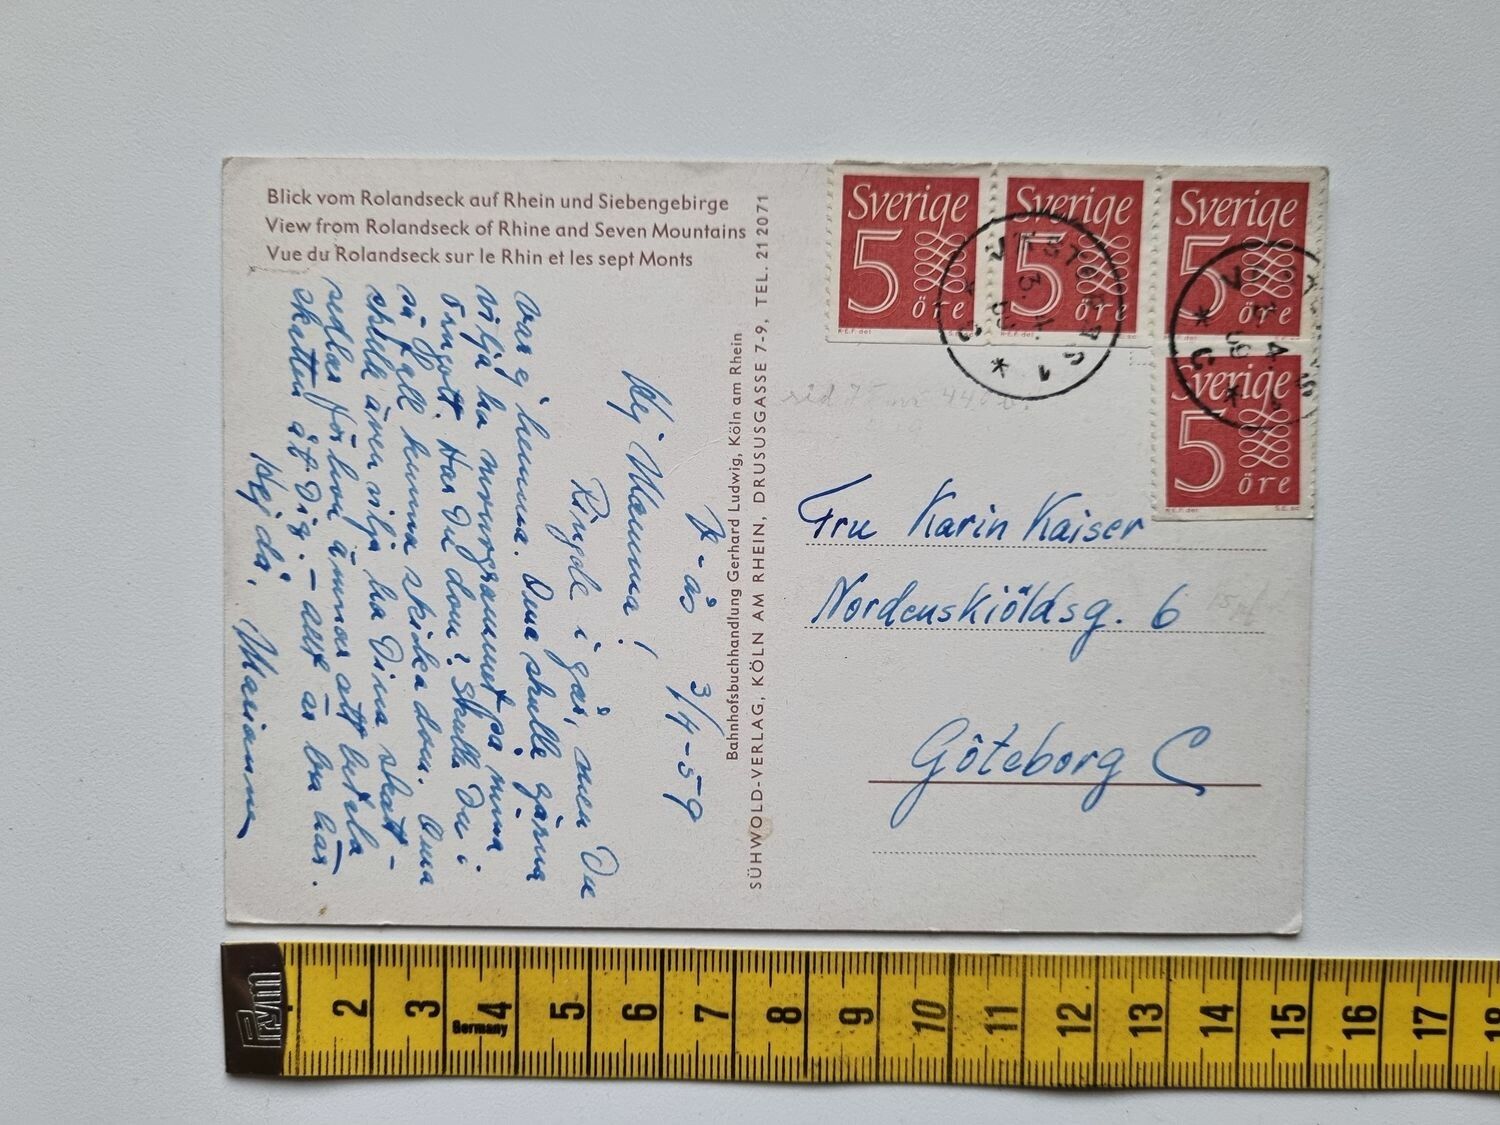 Blick vom Rolandseck auf Rhein und Siebengebirge
View from Rolandseck of Rhine and Seven Mountains
Vue du Rolandseck sur le Rhin et les sept Monts
V-ås 3/4-59
Hej Mamma!
Ringde i går, men Du
var ej hemma. Oma skulle gärna
vilja ha morgg
örngott. Har Du dom? Skulle Du i
så fall kunna skicka dom. Oma
skulle även vilja ha Dina skatt-
sedlar för hon ämnar att betala
skatten åt Dig. – Allt är bra här.
Hej då, Marianne
Bahnhofsbuchhandlung Gerhard Ludwig, Köln am Rhein
SÜHWOLD-VERLAG, KÖLN AM RHEIN, DRUSUSGASSE 7-9, TEL. 21 20 71
Sverige
5
öre
Sverige
5
öre
Sverige
5
öre
Sverige
5
öre
VÄSTERÅS 1
3.4.59
Fru Karin Kaiser
Nordenskiöldsg. 6
Göteborg C
Prym
Germany
2 3 4 5 6 7 8 9 10 11 12 13 14 15 16 17 18